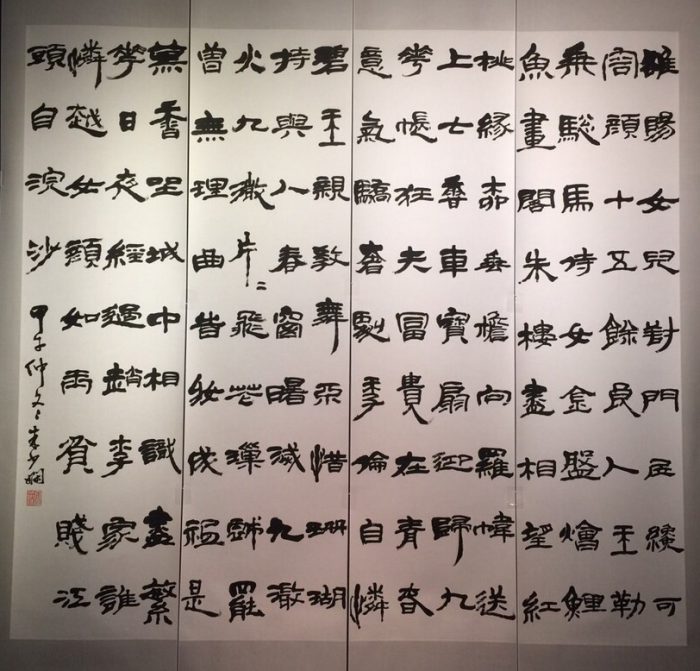 雒陽女兒對門居纔可
容顏十五餘良人玉勒
乘驄馬侍女金盤鱠鯉
魚畫閣朱樓盡相望紅
桃綠柳垂檐向羅幃送
上七香車寶扇迎歸九
華帳狂夫富貴在青春
意氣驕奢劇季倫自憐
碧玉親教舞不惜珊瑚
持與人春窗曙滅九微
火九微片〻飛花璅戲罷
曾無理曲旹妝成祗是
薰香坐城中相識盡繁
華日夜經過趙李家誰
憐越女顏如玉貧賤江
頭自浣沙
甲午仲冬